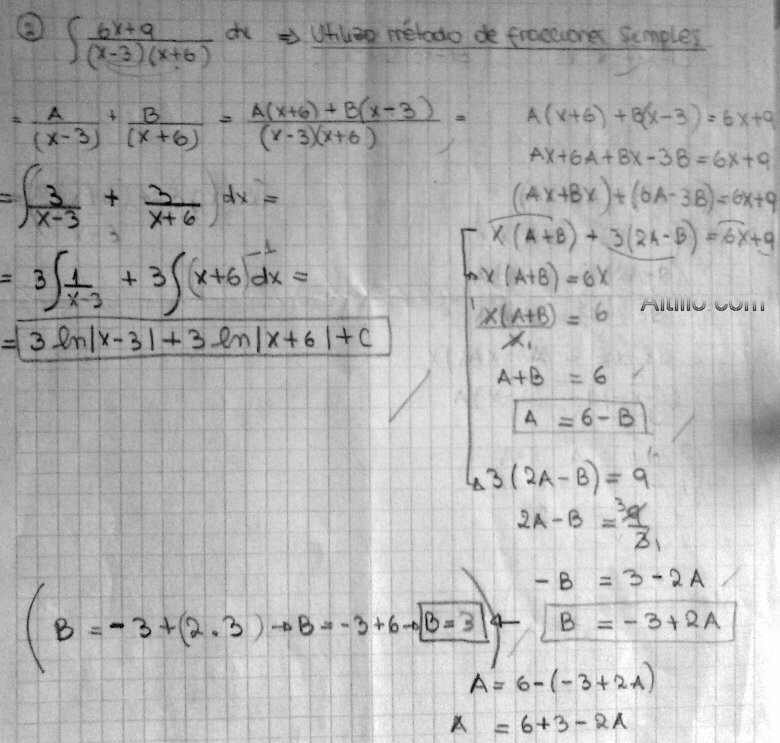 ② ∫ 6x+9 / (x-3)(x+6) dx ⇒ Utilizo método de fracciones simples
= A/(x-3) + B/(x+6) = A(x+6) + B(x-3) / (x-3)(x+6) =
= ∫(3/x-3 + 3/x+6) dx =
= 3∫ 1/x-3 + 3∫(x+6)⁻¹ dx =
= 3 ln|x-3| + 3 ln|x+6| + C
A(x+6) + B(x-3) = 6x+9
Ax+6A+Bx-3B = 6x+9
(Ax+Bx)+(6A-3B) = 6x+9
x(A+B) + 3(2A-B) = 6x+9
x(A+B) = 6x
x(A+B)/x = 6
A+B = 6
A = 6-B
3(2A-B) = 9
2A-B = 9/3
-B = 3-2A
B = -3+2A
(B = -3+(2.3) → B = -3+6 → B=3)
A = 6-(-3+2A)
A = 6+3-2A
Altillo.com